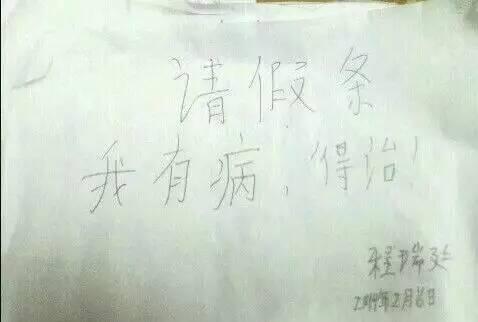 请假条
我有病，得治！
程瑞
2014年2月 日